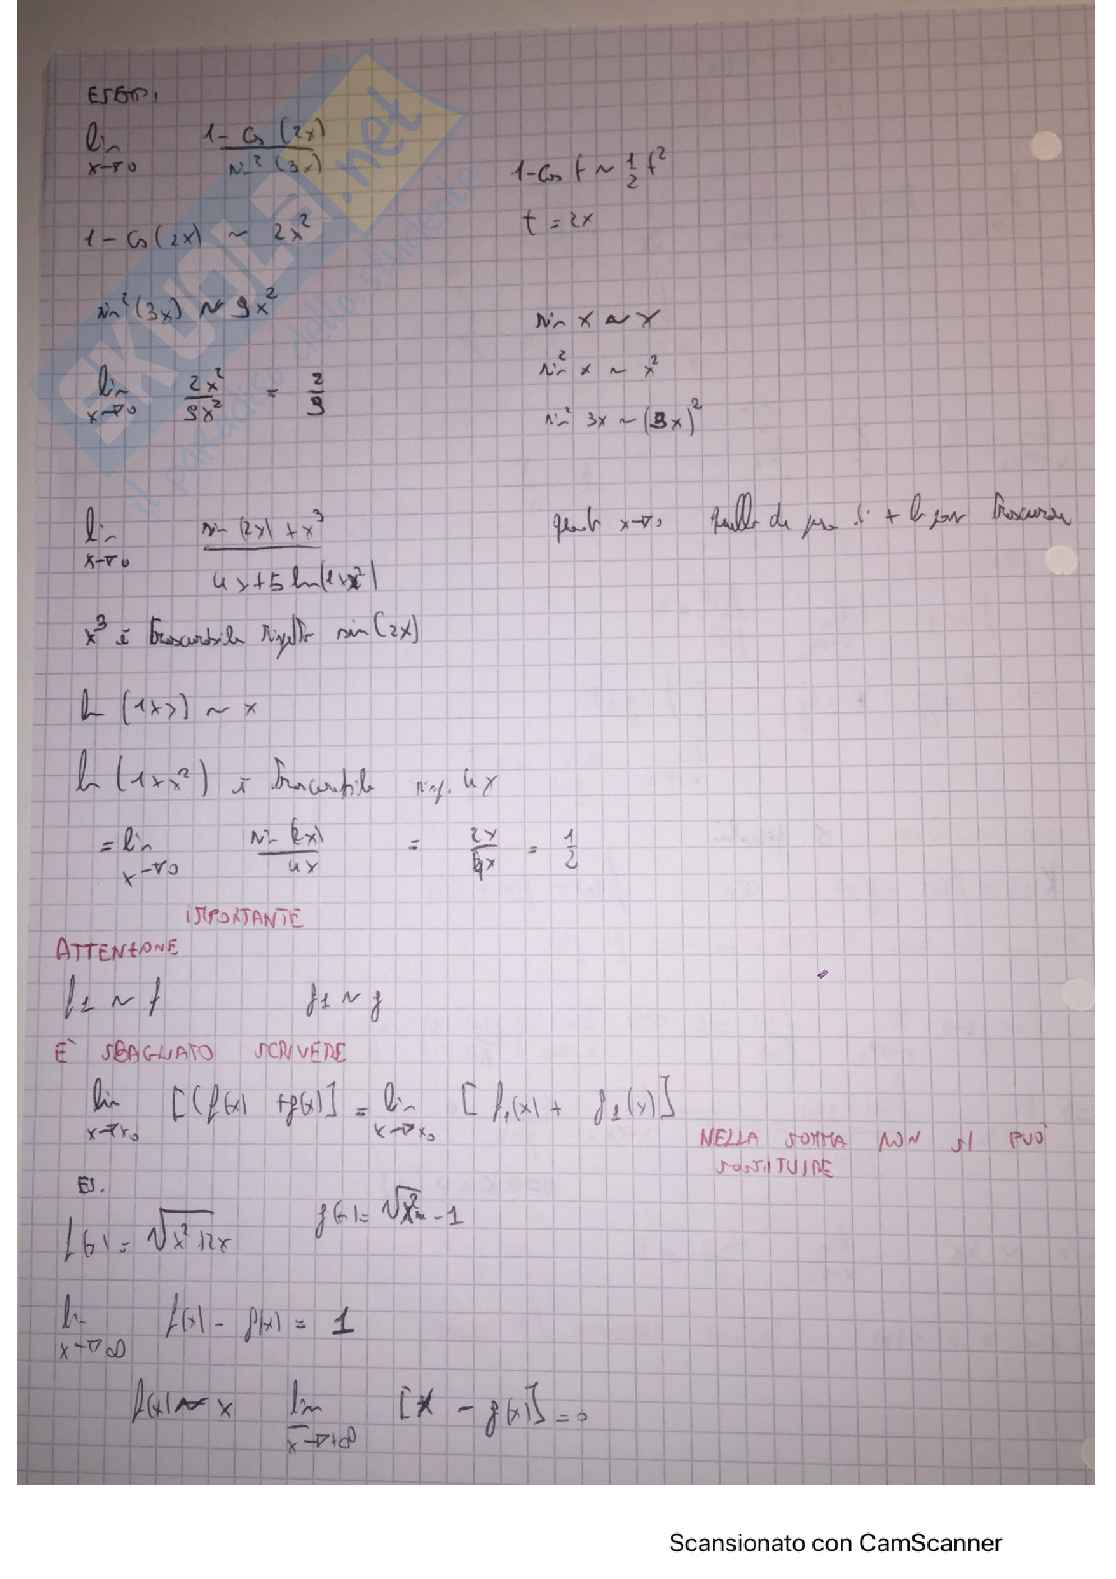 ESEMPI
lim x→0 1 - cos (2x) / sin² (3x)
1 - cos t ~ 1/2 t²
t = 2x
1 - cos (2x) ~ 2x²
sin² (3x) ~ 9x²
sin x ~ x
sin² x ~ x²
sin² 3x ~ (3x)²
lim x→0 2x² / 9x² = 2/9
lim x→0 sin (2x) + x³ / 4x + 5 ln(1+x²)
quando x→0
x³ è trascurabile rispetto sin (2x)
ln (1+x) ~ x
ln (1+x²) è trascurabile risp. 4x
= lim x→0 sin (2x) / 4x = 2x / 4x = 1/2
IMPORTANTE
ATTENZIONE
f1 ~ f g1 ~ g
È SBAGLIATO SCRIVERE
lim x→x0 [(f(x) + g(x)] = lim x→x0 [f1(x) + g1(x)]
NELLA SOMMA NON SI PUÒ
SOSTITUIRE
ES.
f(x) = √x²+2x
lim x→∞ f(x) - g(x) = 1
f(x) ~ x lim x→+∞ [x - g(x)] = 0
Scansionato con CamScanner
SKUOLA.net
il paradiso dello studente